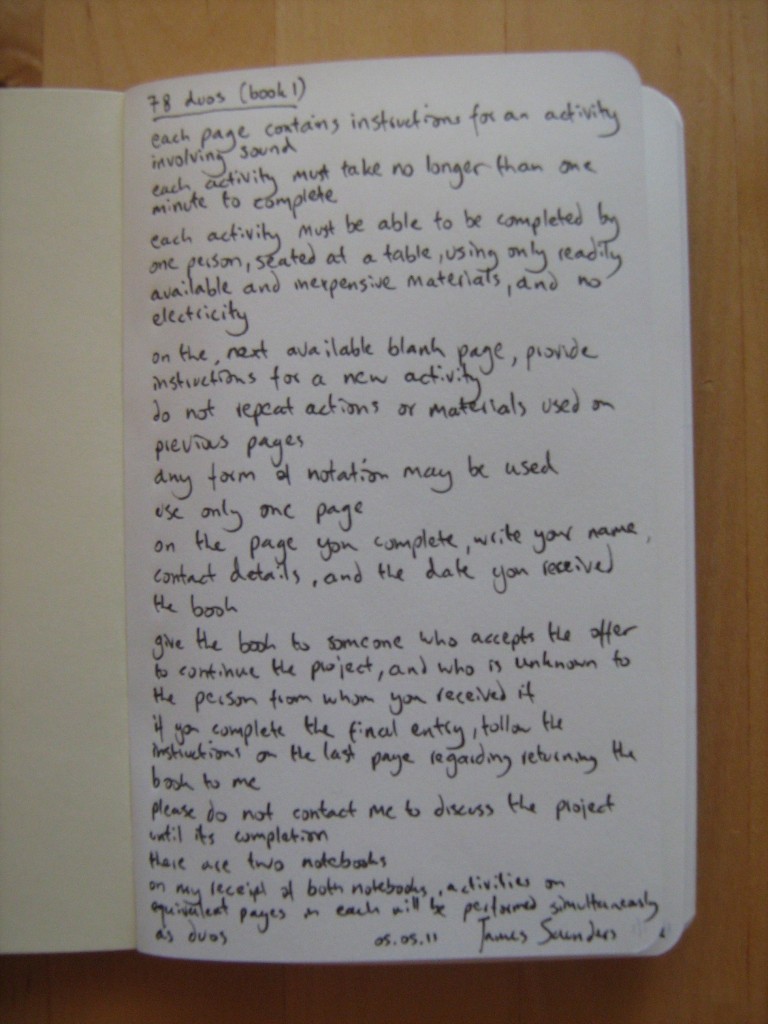 78 duos (book 1)
each page contains instructions for an activity
involving sound
each activity must take no longer than one
minute to complete
each activity must be able to be completed by
one person, seated at a table, using only readily
available and inexpensive materials, and no
electricity
on the next available blank page, provide
instructions for a new activity
do not repeat actions or materials used on
previous pages
any form of notation may be used
use only one page
on the page you complete, write your name,
contact details, and the date you received
the book
give the book to someone who accepts the offer
to continue the project, and who is unknown to
the person from whom you received it
if you complete the final entry, follow the
instructions on the last page regarding returning the
book to me
please do not contact me to discuss the project
until its completion
there are two notebooks
on my receipt of both notebooks, activities on
equivalent pages in each will be performed simultaneously
as duos 05.05.11 James Saunders